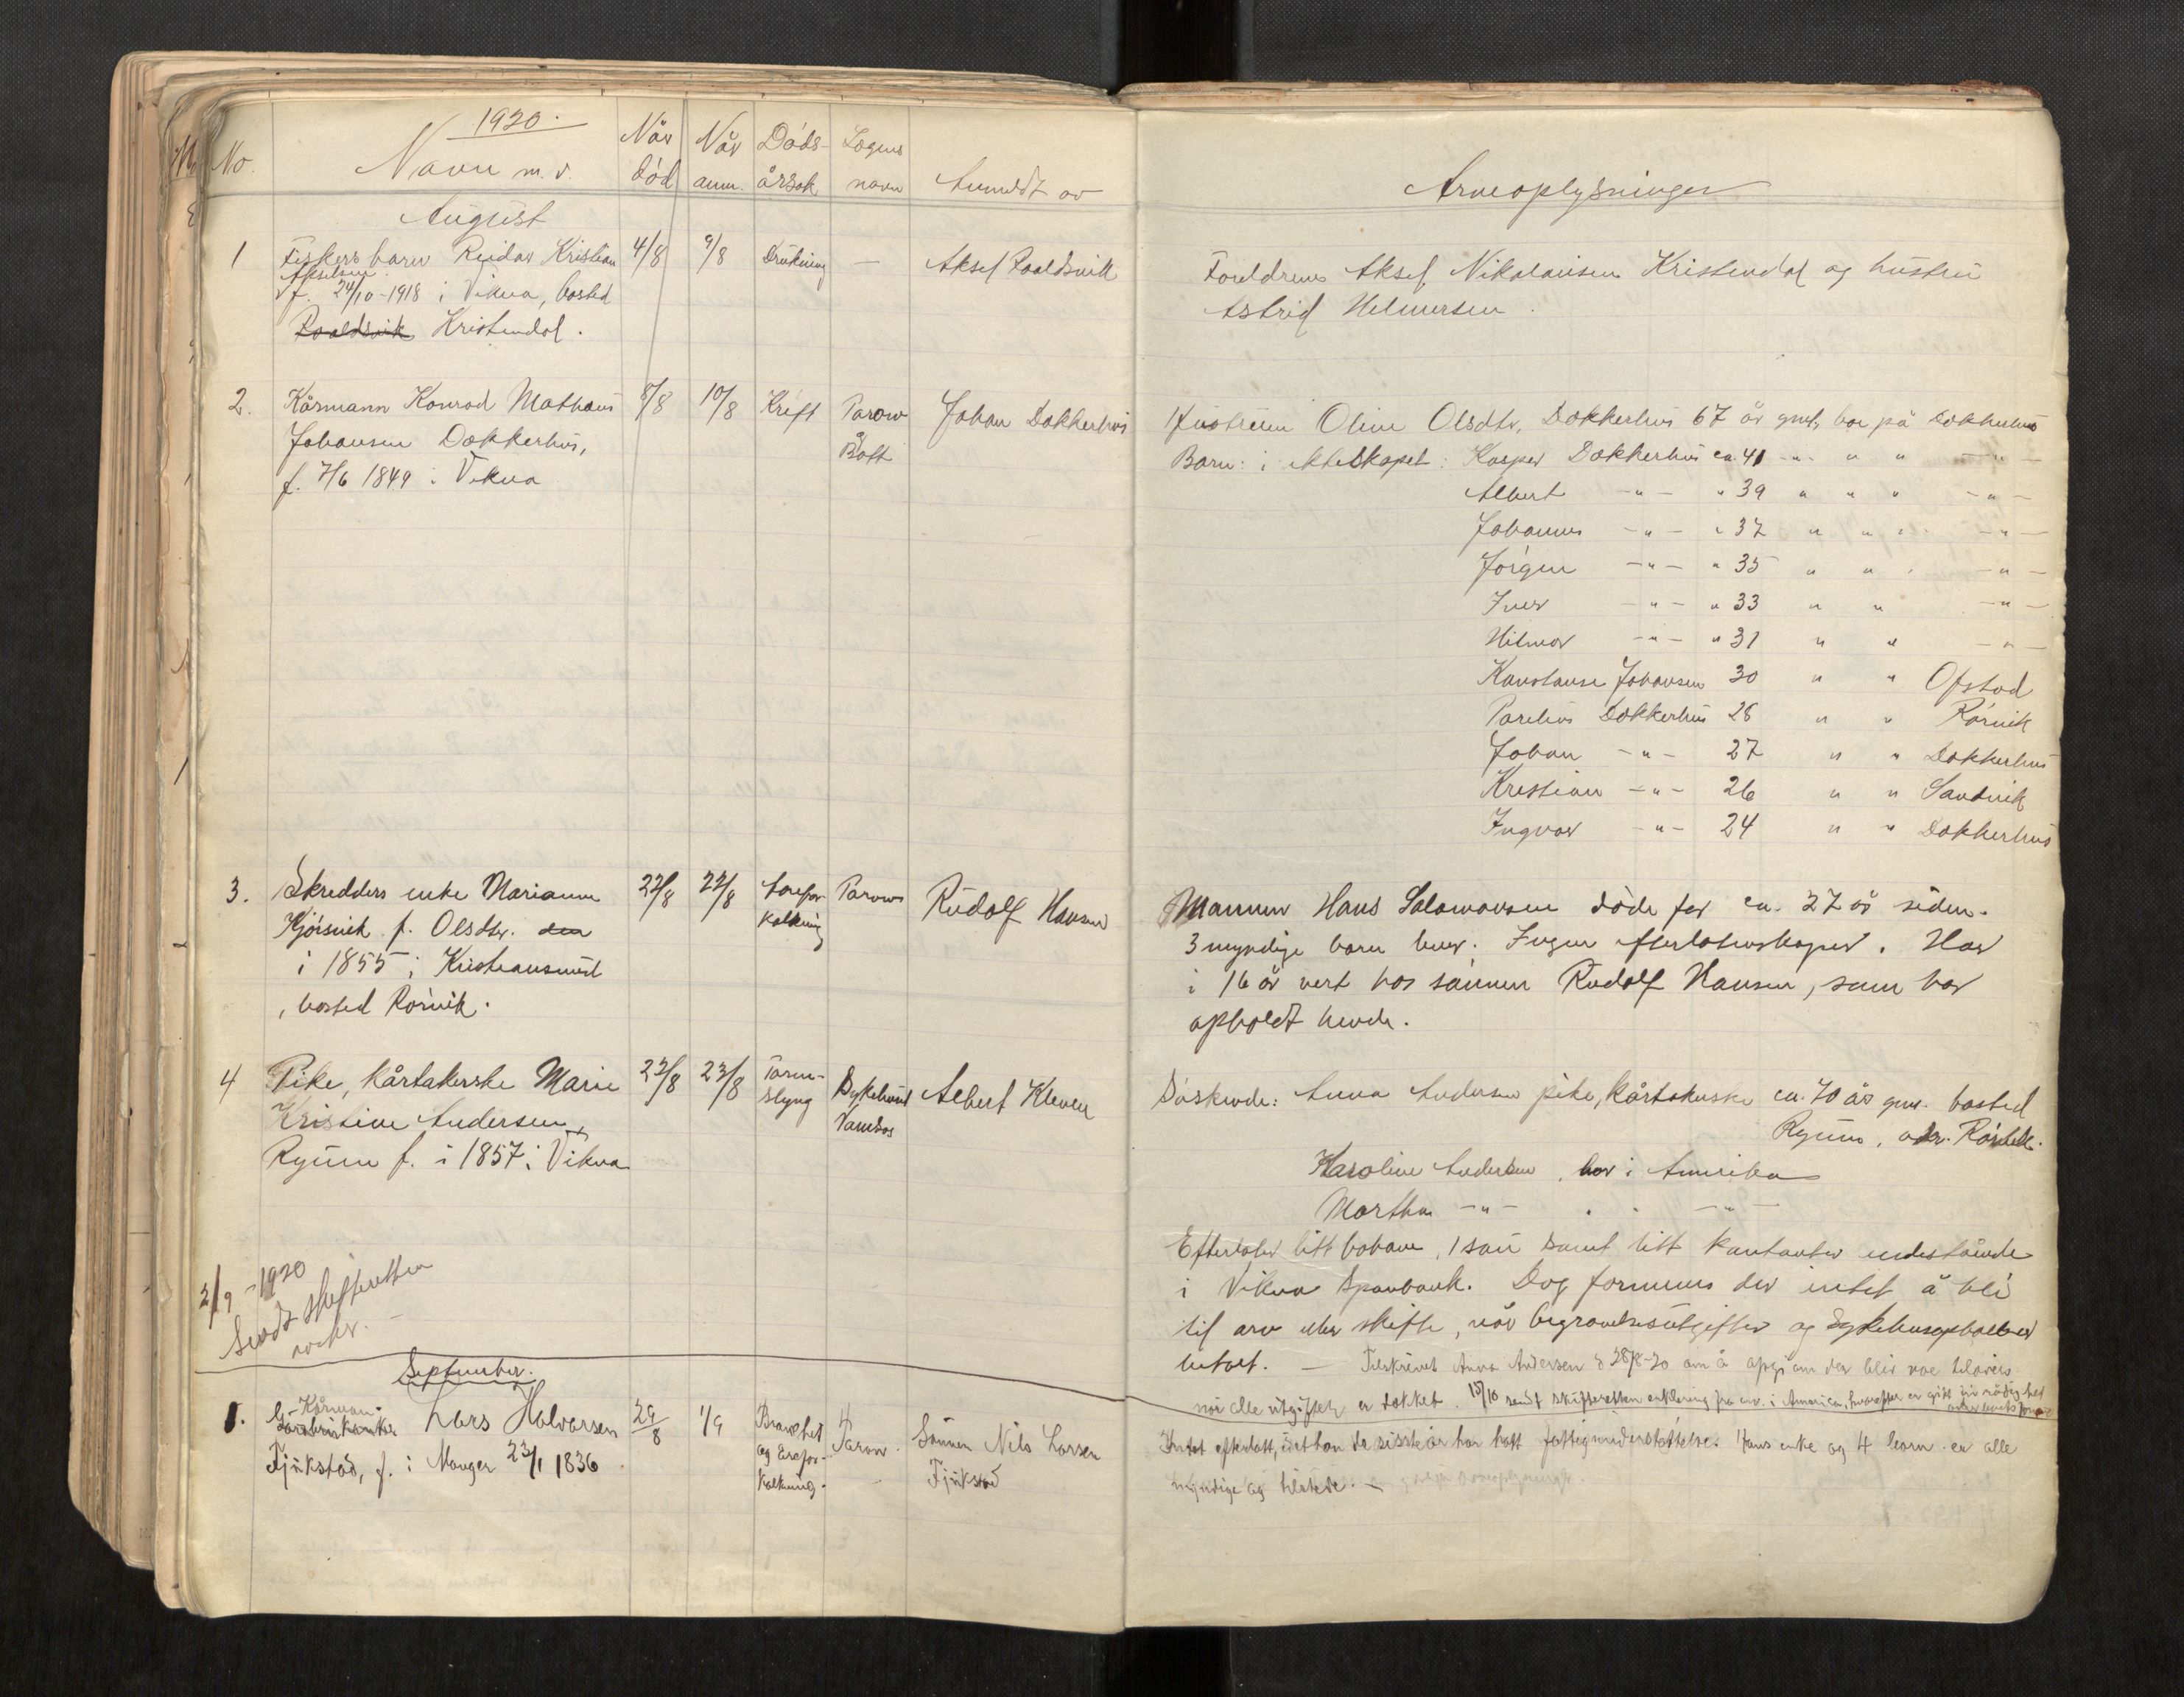 1920.
No.
Navn m. v.
Når død
Når anm.
Døds-årsak
Lægens navn
Anmeldt av
Arveoplysninger
August
1 Fiskers barn Reidar Kristian 4/8 9/8 Drukning — Aksel Roaldsvik
Akselsen
f. 24/10-1918 i Vikna, bosted
Roaldsvik Kristendal.
Foreldrene Aksel Nikolaisen Kristendal og hustru
Astrid Helmersen.
2. Kårmann Konrad Mathæus 8/8 10/8 Kreft Parow Johan Dokkerhus
Johansen Dokkerhus, Å Bott
f. 7/6 1849 i Vikna
Hustruen Oline Olsdtr. Dokkerhus 67 år gml, bor på Dokkerhus
Barn: i ekteskapet: Kasper Dokkerhus ca. 41 " " " — " —
Albert — " — " 39 " " " — " —
Johannes — " — " 37 " " " — " —
Jørgen — " — " 35 " " " — " —
Iver — " — " 33 " " — " —
Hilmar — " — " 31 " " — " —
Konstanse Johansen 30 " " Ofstad
Parelius Dokkerhus 28 " " Rørvik
Johan — " — 27 " " Dokkerhus
Kristian — " — 26 " " Sandvik
Ingvar — " — 24 " " Dokkerhus
3. Skredders enke Marianne 22/8 22/8 Arefor- Parow Rudolf Hansen
Kjørsvik f. Olsdtr. den kalkning
i 1855 i Kristiansund
, bosted Rørvik.
Mannen Hans Salamonsen døde for ca. 27 år siden.
3 myndige barn lever. Ingen efterlatenskaper. Har
i 16 år vert hos sønnen Rudolf Hansen, som har
opholdt hende.
4 Pike, kårtakerske Marie 23/8 23/8 Tarm- Sykehuset Albert Kleven
Kristine Andersen, slyng Namsos
Ryum f. i 1857 i Vikna
Søskende: Anna Andersen pike, kårtakerske ca. 70 år gml. bosted
Ryum, adr. Rørvik.
Karoline Andersen, bor i Amerika
Martha — " — " " — " —
Efterlater litt bohave, 1 sau samt litt kontanter indestående
i Vikna Sparebank. Dog formenes der intet å bli
til arv eller skifte, når begravelsesutgifter og sykehusopholdet er
betalt. — Tilskrevet Anna Andersen d 28/8-20 om å opgi om der blir noe tilovers
når alle utgifter er dekket. 15/10 sendt skifteretten erklæring fra arv. i Amerika,
2/9-1920
Sendt skifteretten
September.
1. Kårman Lars Halvorsen 29/8 1/9 Brankhet Parow. Sønnen Nils Larsen
Fjukstad, f. i Manger 23/1 1836. og årefor- Fjukstad
kalkning.
Intet efterlatt, idet han de siste år har hatt fattigunderstøttelse. Hans enke og 4 barn er alle
myndige og tilstede. —